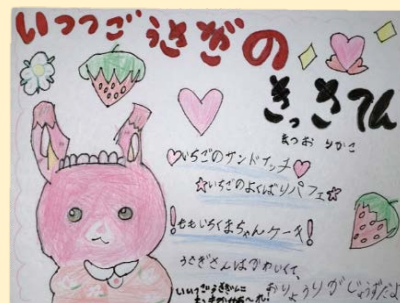 いつつごうさぎの
きっさてん
まつお りかこ
♡いちごのサンドイッチ♡
☆いちごのよくばりパフェ☆
！ももいちくまちゃんケーキ！
うさぎさんはかわいくて、
おりょうりがじょうずだよ
いつつごうさぎさんに